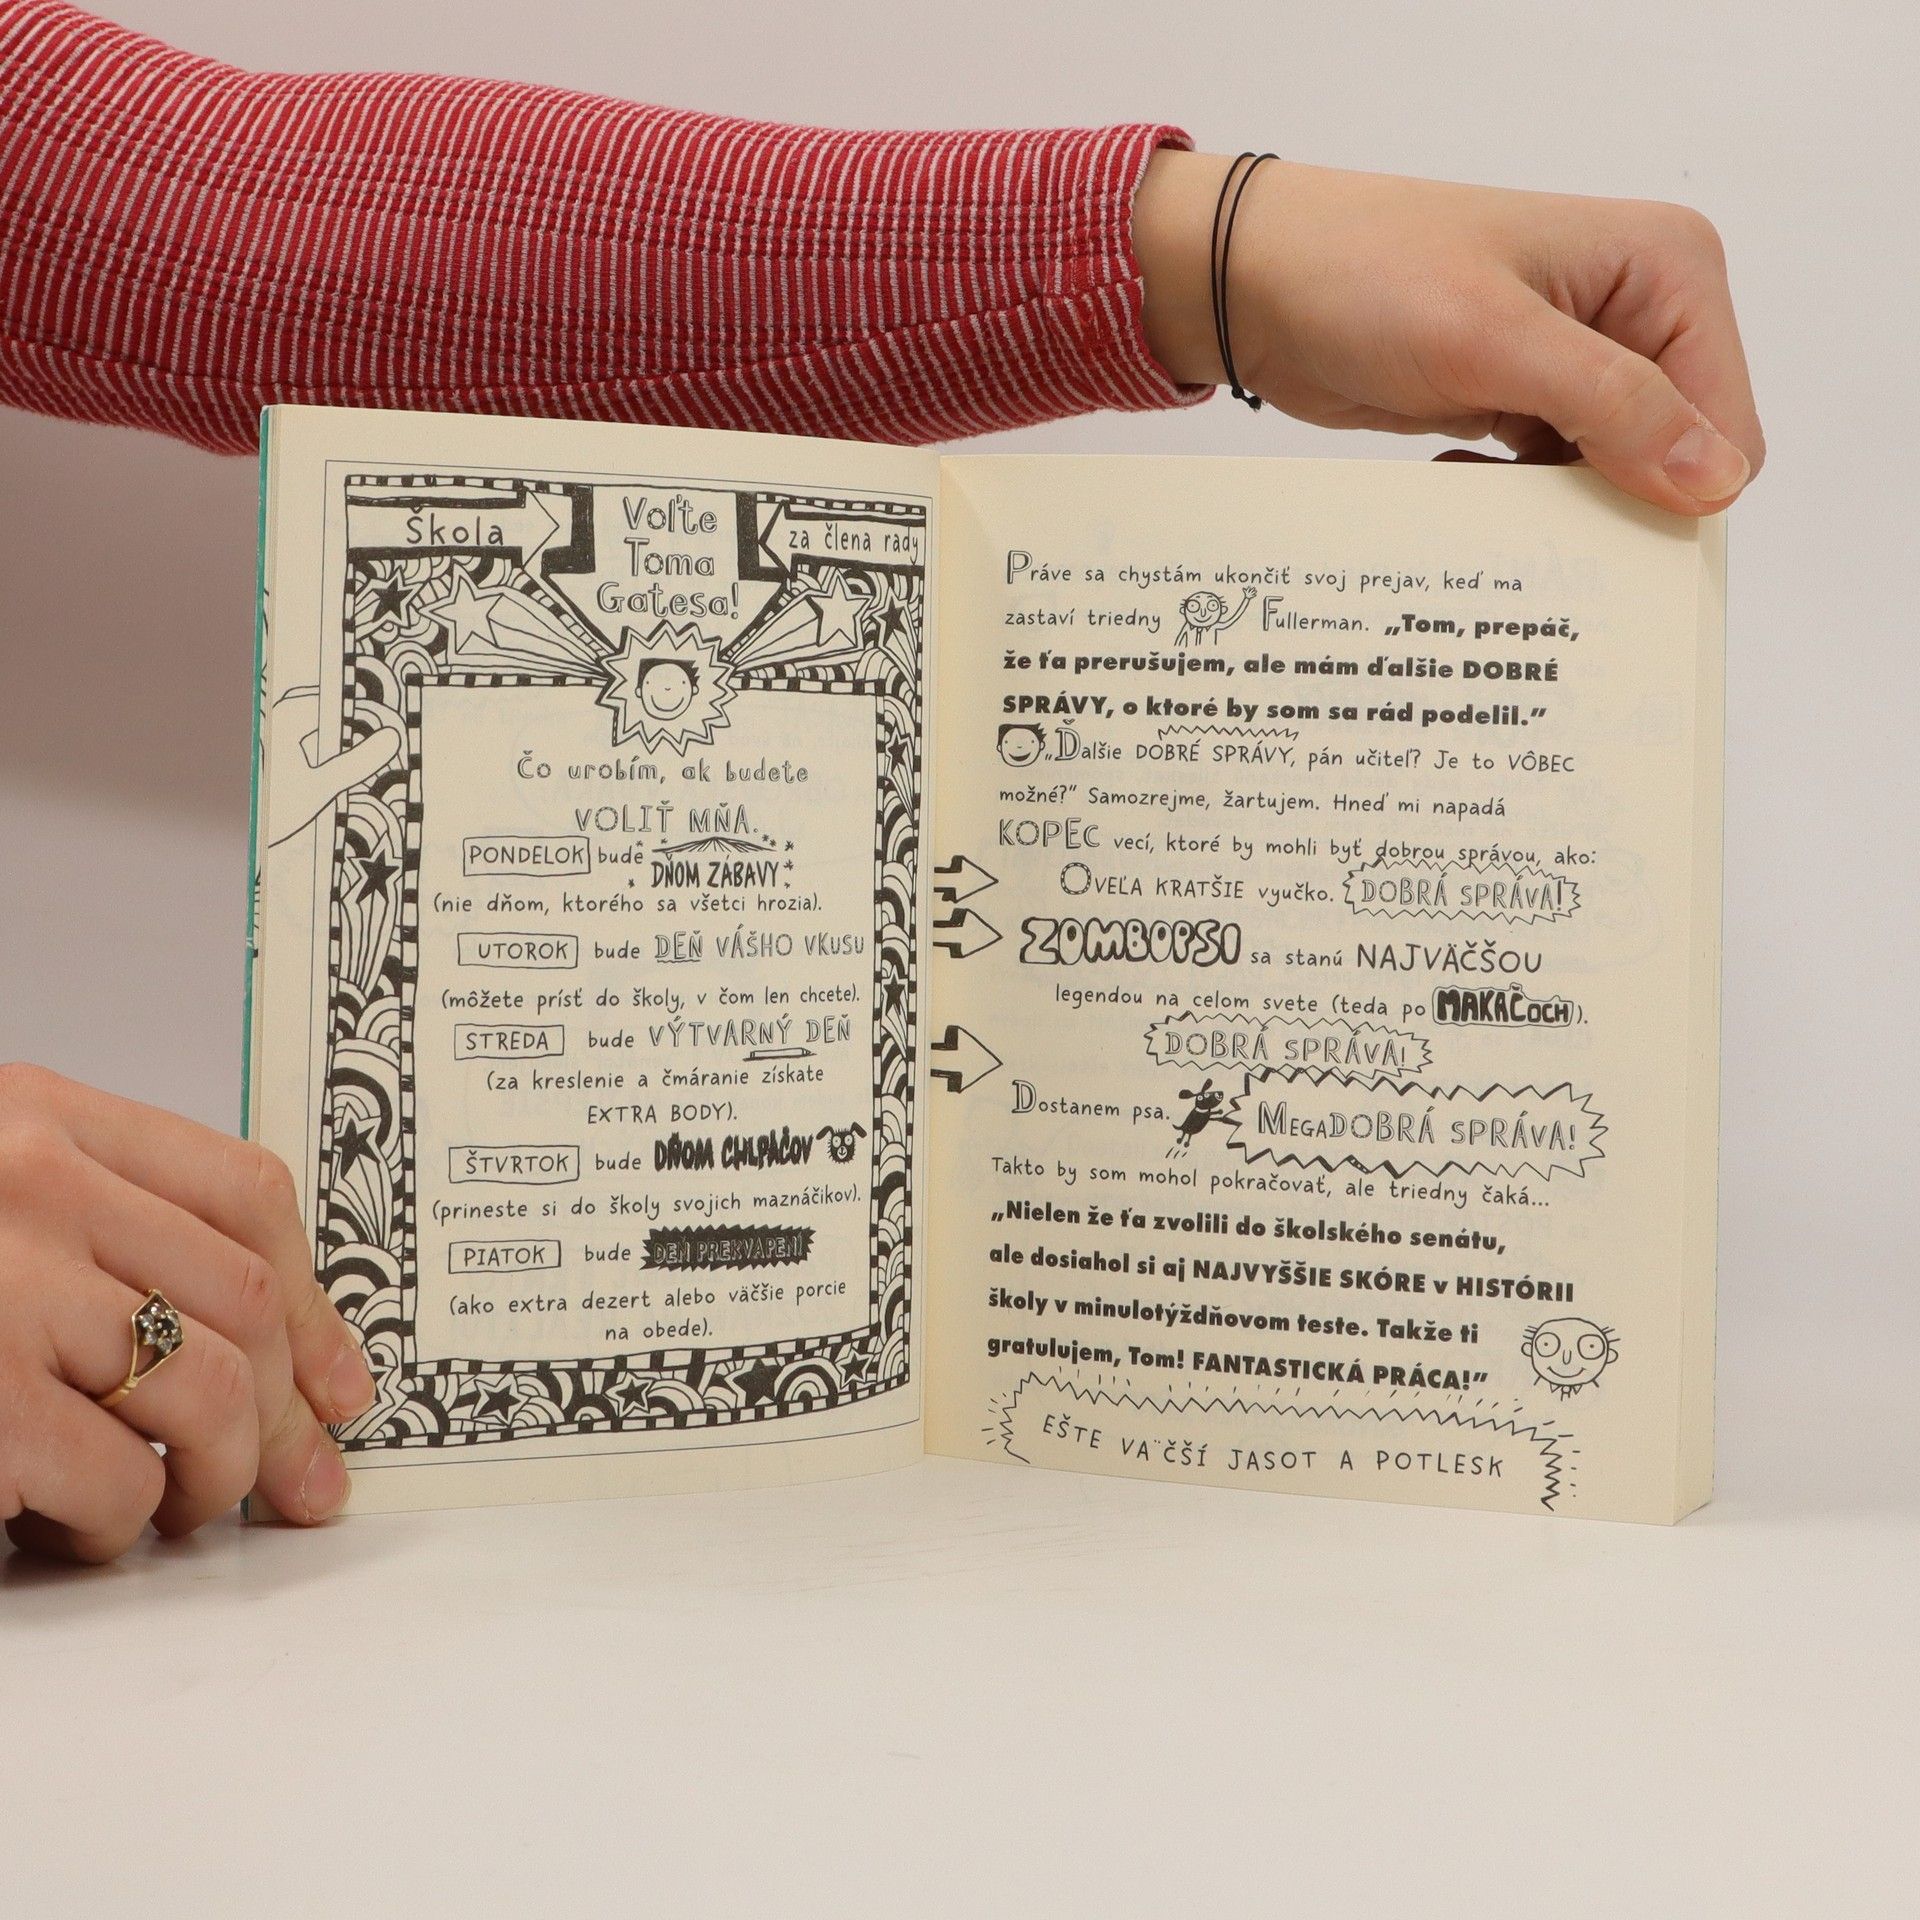 Škola
Voľte
Toma
Gatesa!
za člena rady
Čo urobím, ak budete
VOLIŤ MŇA.
PONDELOK bude DŇOM ZÁBAVY
(nie dňom, ktorého sa všetci hrozia).
UTOROK bude DEŇ VÁŠHO VKUSU
(môžete prísť do školy, v čom len chcete).
STREDA bude VÝTVARNÝ DEŇ
(za kreslenie a čmáranie získate
EXTRA BODY).
ŠTVRTOK bude DŇOM CHLPÁČOV
(prineste si do školy svojich maznáčikov).
PIATOK bude DEŇ PREKVAPENÍ
(ako extra dezert alebo väčšie porcie
na obede).
Práve sa chystám ukončiť svoj prejav, keď ma
zastaví triedny Fullerman. „Tom, prepáč,
že ťa prerušujem, ale mám ďalšie DOBRÉ
SPRÁVY, o ktoré by som sa rád podelil.”
„Ďalšie DOBRÉ SPRÁVY, pán učiteľ? Je to VÔBEC
možné?” Samozrejme, žartujem. Hneď mi napadá
KOPEC vecí, ktoré by mohli byť dobrou správou, ako:
OVEĽA KRATŠIE vyučko. DOBRÁ SPRÁVA!
ZOMBOPSI sa stanú NAJVÄČŠOU
legendou na celom svete (teda po MAKAČOCH).
DOBRÁ SPRÁVA!
Dostanem psa. MEGADOBRÁ SPRÁVA!
Takto by som mohol pokračovať, ale triedny čaká...
„Nielen že ťa zvolili do školského senátu,
ale dosiahol si aj NAJVYŠŠIE SKÓRE v HISTÓRII
školy v minulotýždňovom teste. Takže ti
gratulujem, Tom! FANTASTICKÁ PRÁCA!”
EŠTE VÄČŠÍ JASOT A POTLESK